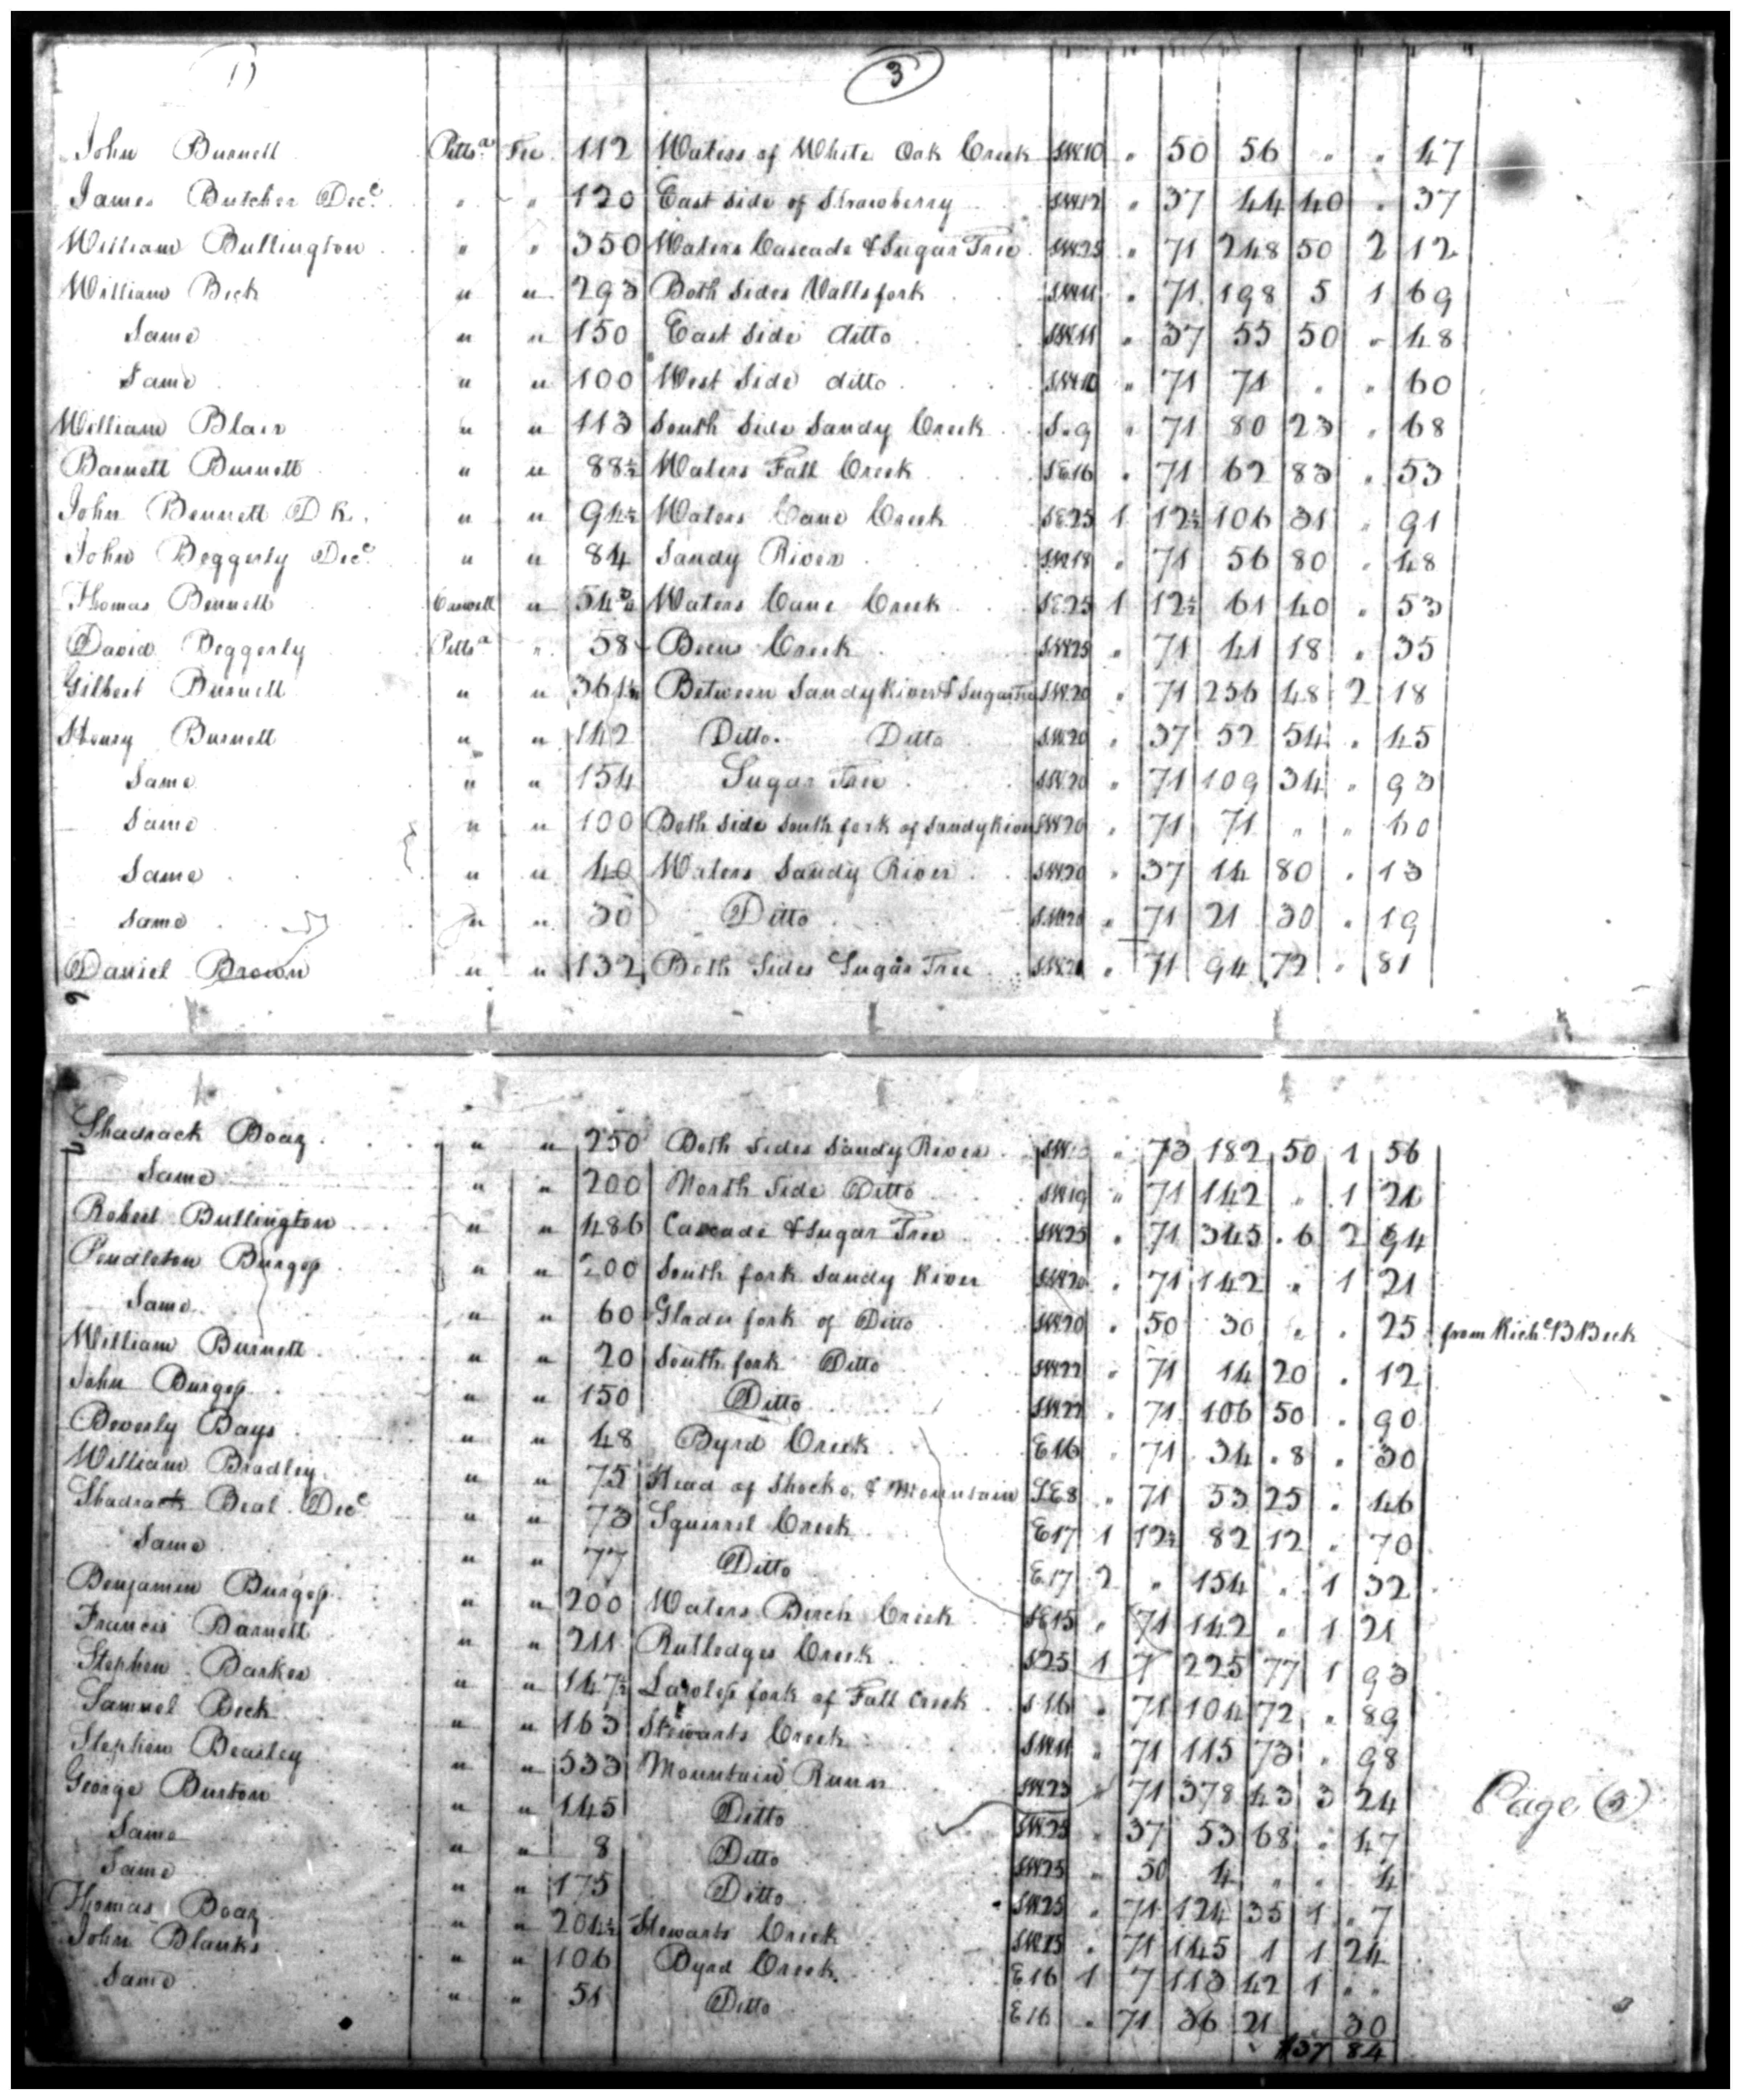 3
John Burnett Pittsa. Fee 112 Waters of White Oak Creek SW10 " 50 56 " " 47
James Butcher Decd. " " 120 East side of Strawberry SW12 " 37 44 40 " 37
William Bullington " " 350 Waters Cascade & Sugar Tree SW25 " 71 248 50 2 12
William Beck " " 293 Both Sides Valls fork SW11 " 71 198 5 1 69
Same " " 150 East Side ditto SW11 " 37 55 50 " 48
Same " " 100 West Side ditto SW10 " 71 71 " " 60
William Blair " " 113 South Side Sandy Creek S. 9 " 71 80 23 " 68
Barnett Burnett " " 88½ Waters Fall Creek SE16 " 71 62 83 " 53
John Bennett D K. " " 94½ Waters Cane Creek SE25 1 12½ 106 31 " 91
John Beggerly Decd. " " 84 Sandy River SW18 " 71 56 80 " 48
Thomas Bennett Caswell " 54¾ Waters Cane Creek SE25 1 12½ 61 40 " 53
David Beggerly Pittsa " 58 Beens Creek SW25 " 71 41 18 " 35
Gilbert Burnett " " 361½ Between Sandy River & Sugar Tree SW20 " 71 256 48 2 18
Henry Burnett " " 142 Ditto. Ditto SW20 " 37 52 54 " 45
Same " " 154 Sugar Tree SW20 " 71 109 34 " 93
Same " " 100 Both Side South fork of Sandy River SW20 " 71 71 " " 60
Same " " 40 Waters Sandy River SW20 " 37 14 80 " 13
Same " " 30 Ditto SW20 " 71 21 30 " 19
Daniel Brown " " 132 Both Sides Sugar Tree SW20 " 71 94 72 " 81
Shadrack Boaz " " 250 Both Sides Sandy River SW " 73 182 50 1 56
Same " " 200 North Side Ditto SW19 " 71 142 " 1 21
Robert Bullington " " 486 Cascade & Sugar Tree SW25 " 71 345 . 6 2 94
Pendleton Burgess " " 200 South fork Sandy River SW20 " 71 142 " 1 21
Same " " 60 Glades fork of Ditto SW20 " 50 30 " " 25 from Richd B Beck
William Burnett " " 20 South fork Ditto SW22 " 71 14 20 " 12
John Burgess " " 150 Ditto SW22 " 71 106 50 " 90
Beverly Bays " " 48 Byrd Creek E16 " 71 34 . 8 " 30
William Bradley " " 75 Head of Shocko. & Mountain SE8 " 71 53 25 " 46
Shadrack Beal Decd " " 73 Squirrel Creek E17 1 12½ 82 12 " 70
Same " " 77 Ditto E17 2 " 154 " 1 32
Benjamin Burgess " " 200 Waters Birch Creek SE15 " 71 142 " 1 21
Francis Barnett " " 211 Rutledges Creek S25 1 7 225 77 1 93
Stephen Barker " " 147½ Lawless fork of Fall Creek S16 " 71 104 72 " 89
Samuel Beck " " 163 Stewarts Creek SW11 " 71 115 73 " 98
Stephen Beasley " " 533 Mountain Runn SW23 " 71 378 43 3 24
George Burton " " 145 Ditto SW25 " 37 53 68 " 47
Same " " 8 Ditto SW25 " 50 4 " " 4
Same " " 175 Ditto SW25 " 71 124 35 1 . 7
Thomas Boaz " " 204½ Stewarts Creek SW25 " 71 145 1 1 24
John Blanks " " 106 Byrd Creek E16 1 7 113 42 1 " "
Same " " 51 Ditto E16 " 71 36 21 " 30
137 84
Page (3)